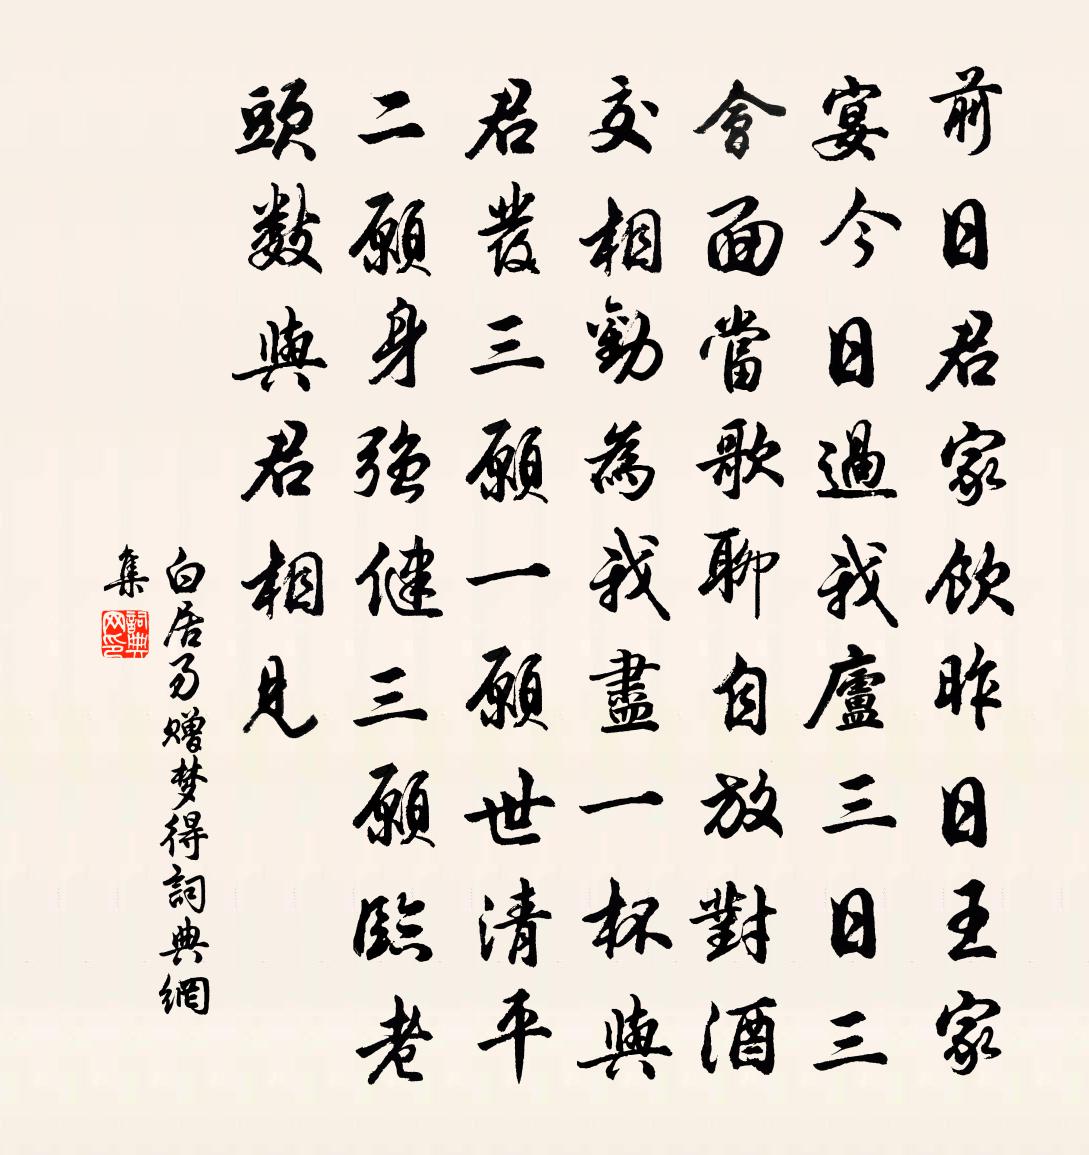 前日君家飲昨日王家
宴今日過我廬三日三
會面當歌聊自放對酒
交相勸為我盡一杯與
君發三願一願世清平
二願身強健三願臨老
頭數與君相見
白居易赠梦得詞典網
集
詞典网印